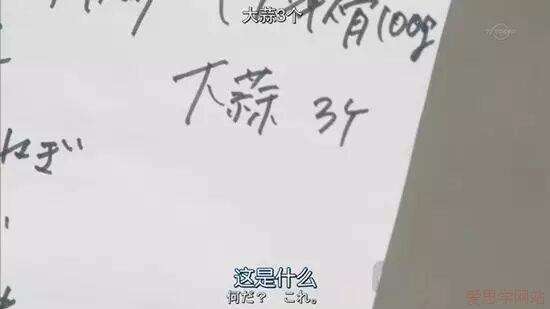 大蒜3个
100g
TV TOKYO
大蒜 3ケ
ねぎ
这是什么
何だ？ これ。
爱思学网站